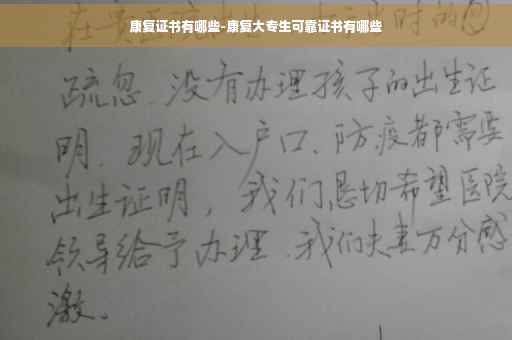 康复证书有哪些-康复大专生可靠证书有哪些
时的
疏忽、没有办理孩子的出生证
明、现在入户口、防疫都需要
出生证明，我们恳切希望医院
领导给予办理、我们夫妻万分感
激。